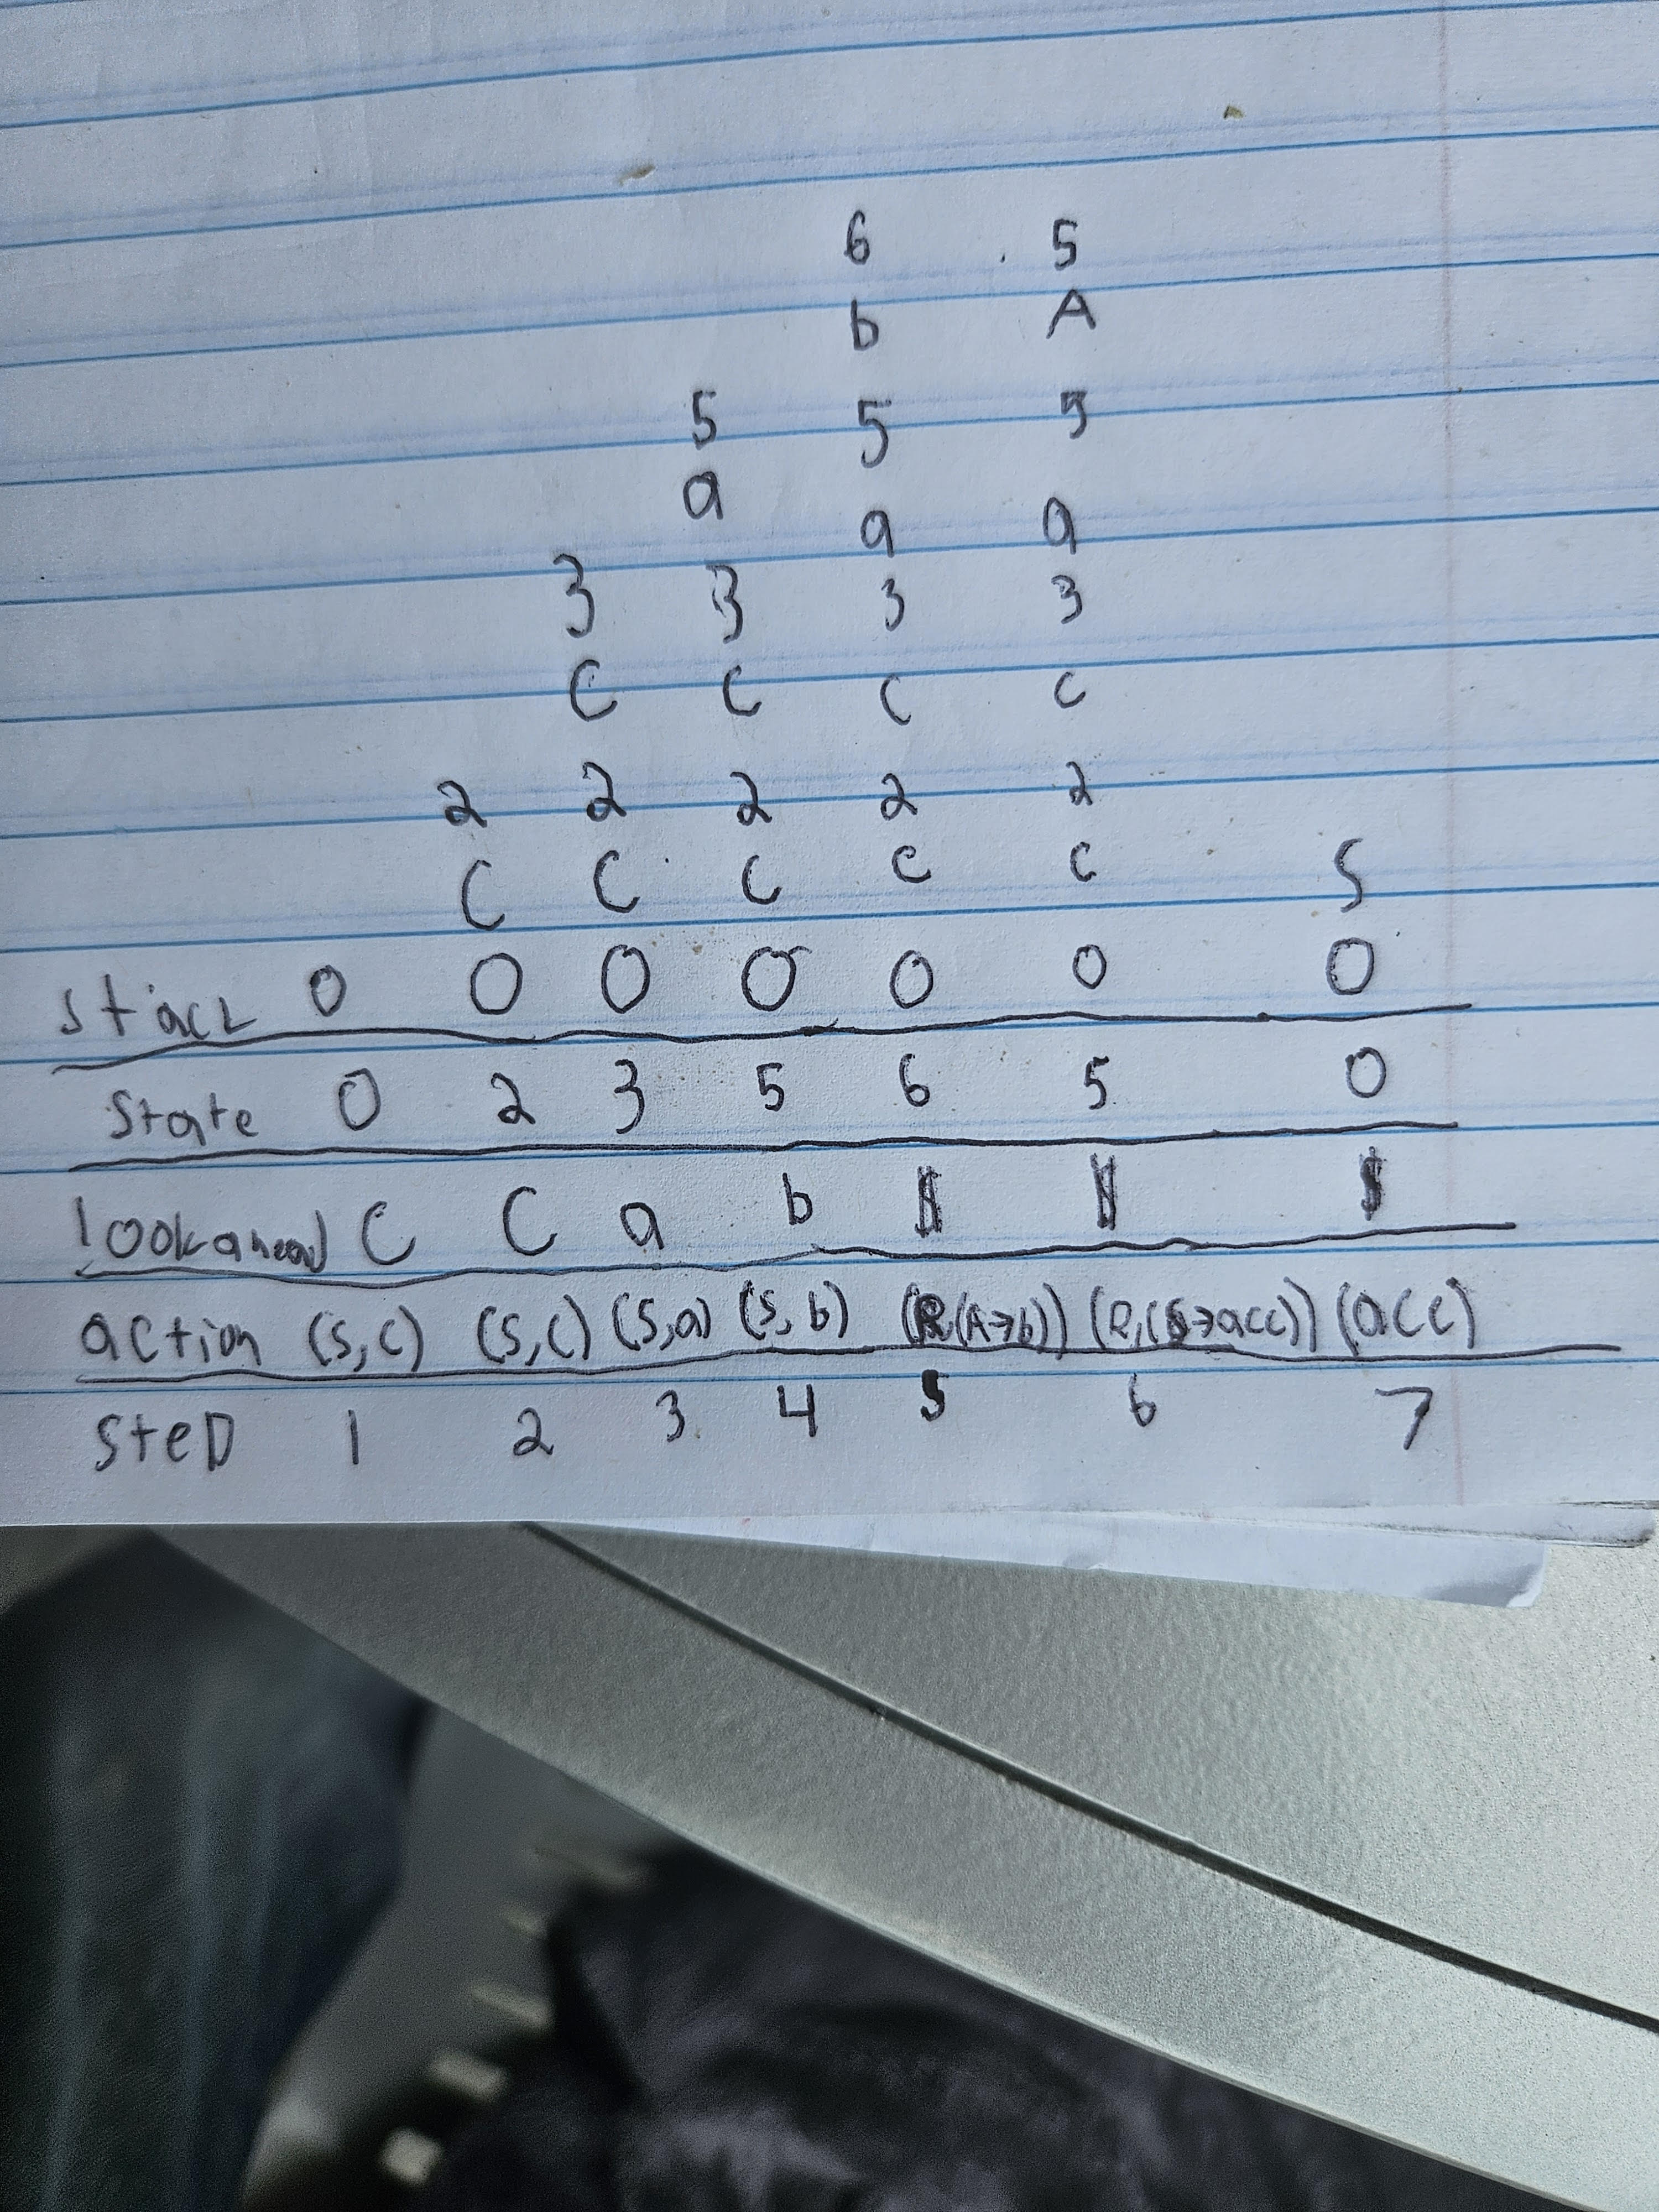 6 5
b A
5 5 5
a a a
3 3 3 3
C C C C
2 2 2 2 2
C C C C C S
Stack 0 0 0 0 0 0 0
State 0 2 3 5 6 5 0
lookahead C C a b $ $ $
action (S,C) (S,C) (S,a) (S,b) (R(A→b)) (R,(S→acc)) (acc)
Step 1 2 3 4 5 6 7